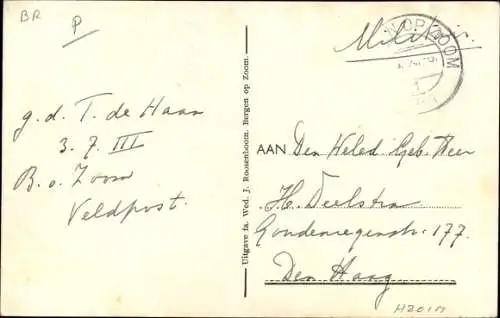 BR
P
Militair.
N OP ZOOM
g.d. T. de Haan
3-7-III
B.o. Zoom
Veldpost.
Uitgave fa. Wed. J. Roosenboom. Bergen op Zoom.
AAN Den Weled. Geb. Heer
H. Deelstra
Goudenregenstr. 177
Den Haag
H201M